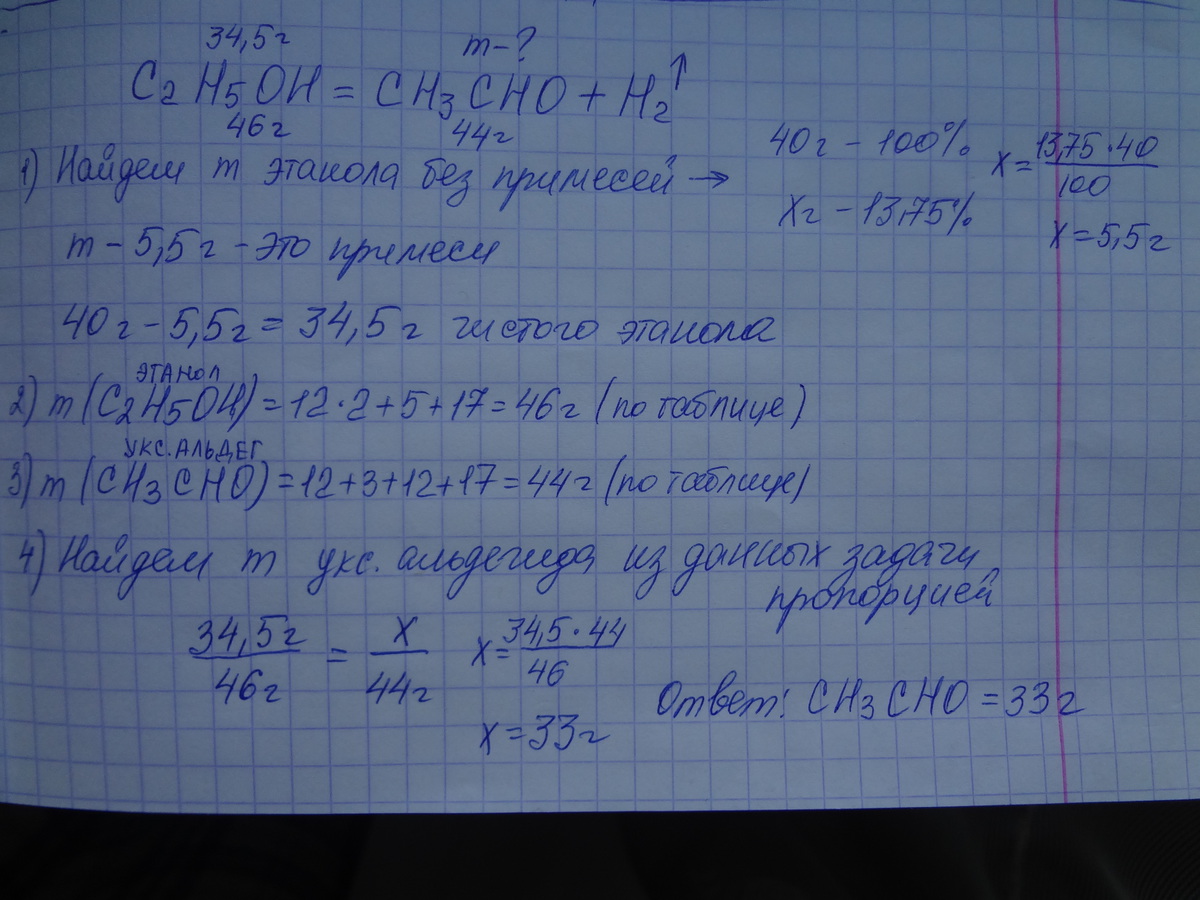 34,5г m-?
C₂H₅OH = CH₃CHO + H₂↑
46г 44г
1) Найдем m этанола без примесей →
40г - 100%
xг - 13,75%
x = 13,75·40/100
x = 5,5г
m - 5,5г - это примеси
40г - 5,5г = 34,5г чистого этанола
ЭТАНОЛ
2) m (C₂H₅OH) = 12·2+5+17 = 46г (по таблице)
УКС. АЛЬДЕГ
3) m (CH₃CHO) = 12+3+12+17 = 44г (по таблице)
4) Найдем m укс. альдегида из данных задачи
пропорцией
34,5г/46г = x/44г
x = 34,5·44/46
x = 33г
Ответ: CH₃CHO = 33г